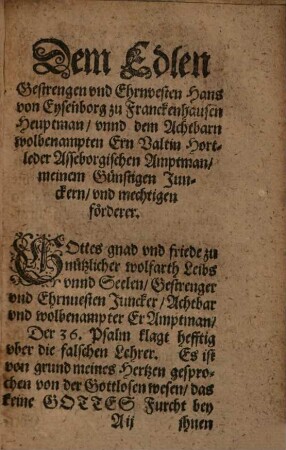 Dem Edlen
Gestrengen vnd Ehrnvesten Hans
von Eysenborg zu Franckenhausen
Heuptman/ vnnd dem Achtbarn
wolbenampten Ern Valtin Hort-
leder Asseborgischen Amptman/
meinem Günstigen Jun-
ckern/ vnd mechtigen
förderer.
GOttes gnad vnd friede zu
nützlicher wolfarth Leibs
vnnd Seelen/ Gestrenger
vnd Ehrnuesten Juncker/ Achtbar
vnd wolbenampter Er Amptman/
Der 36. Psalm klagt hefftig
vber die falschen Lehrer. Es ist
von grund meines Hertzen gespro-
chen von der Gottlosen wesen/ das
keine GOTTES Furcht bey
A ij jhnen